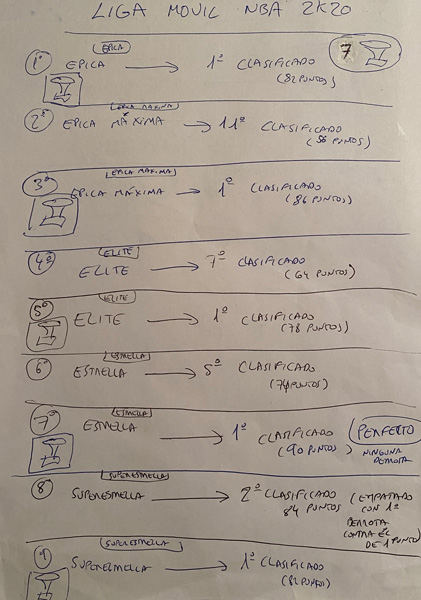 LIGA MOVIL NBA 2K20
7
EPICA
1º EPICA → 1º CLASIFICADO
(82 PUNTOS)
EPICA MAXIMA
2º EPICA MÁXIMA → 11º CLASIFICADO
(56 PUNTOS)
EPICA MÁXIMA
3º EPICA MÁXIMA → 1º CLASIFICADO
(86 PUNTOS)
ELITE
4º ELITE → 7º CLASIFICADO
(64 PUNTOS)
ELITE
5º ELITE → 1º CLASIFICADO
(78 PUNTOS)
ESTRELLA
6º ESTRELLA → 5º CLASIFICADO
(74 PUNTOS)
ESTRELLA
7º ESTRELLA → 1º CLASIFICADO PERFECTO
(90 PUNTOS) NINGUNA
DERROTA
SUPERESTRELLA
8º SUPERESTRELLA → 2º CLASIFICADO (EMPATADO
84 PUNTOS CON 1º
DERROTA
CONTRA ÉL
DE 1 PUNTO)
SUPERESTRELLA
SUPERESTRELLA → 1º CLASIFICADO
(82 PUNTOS)